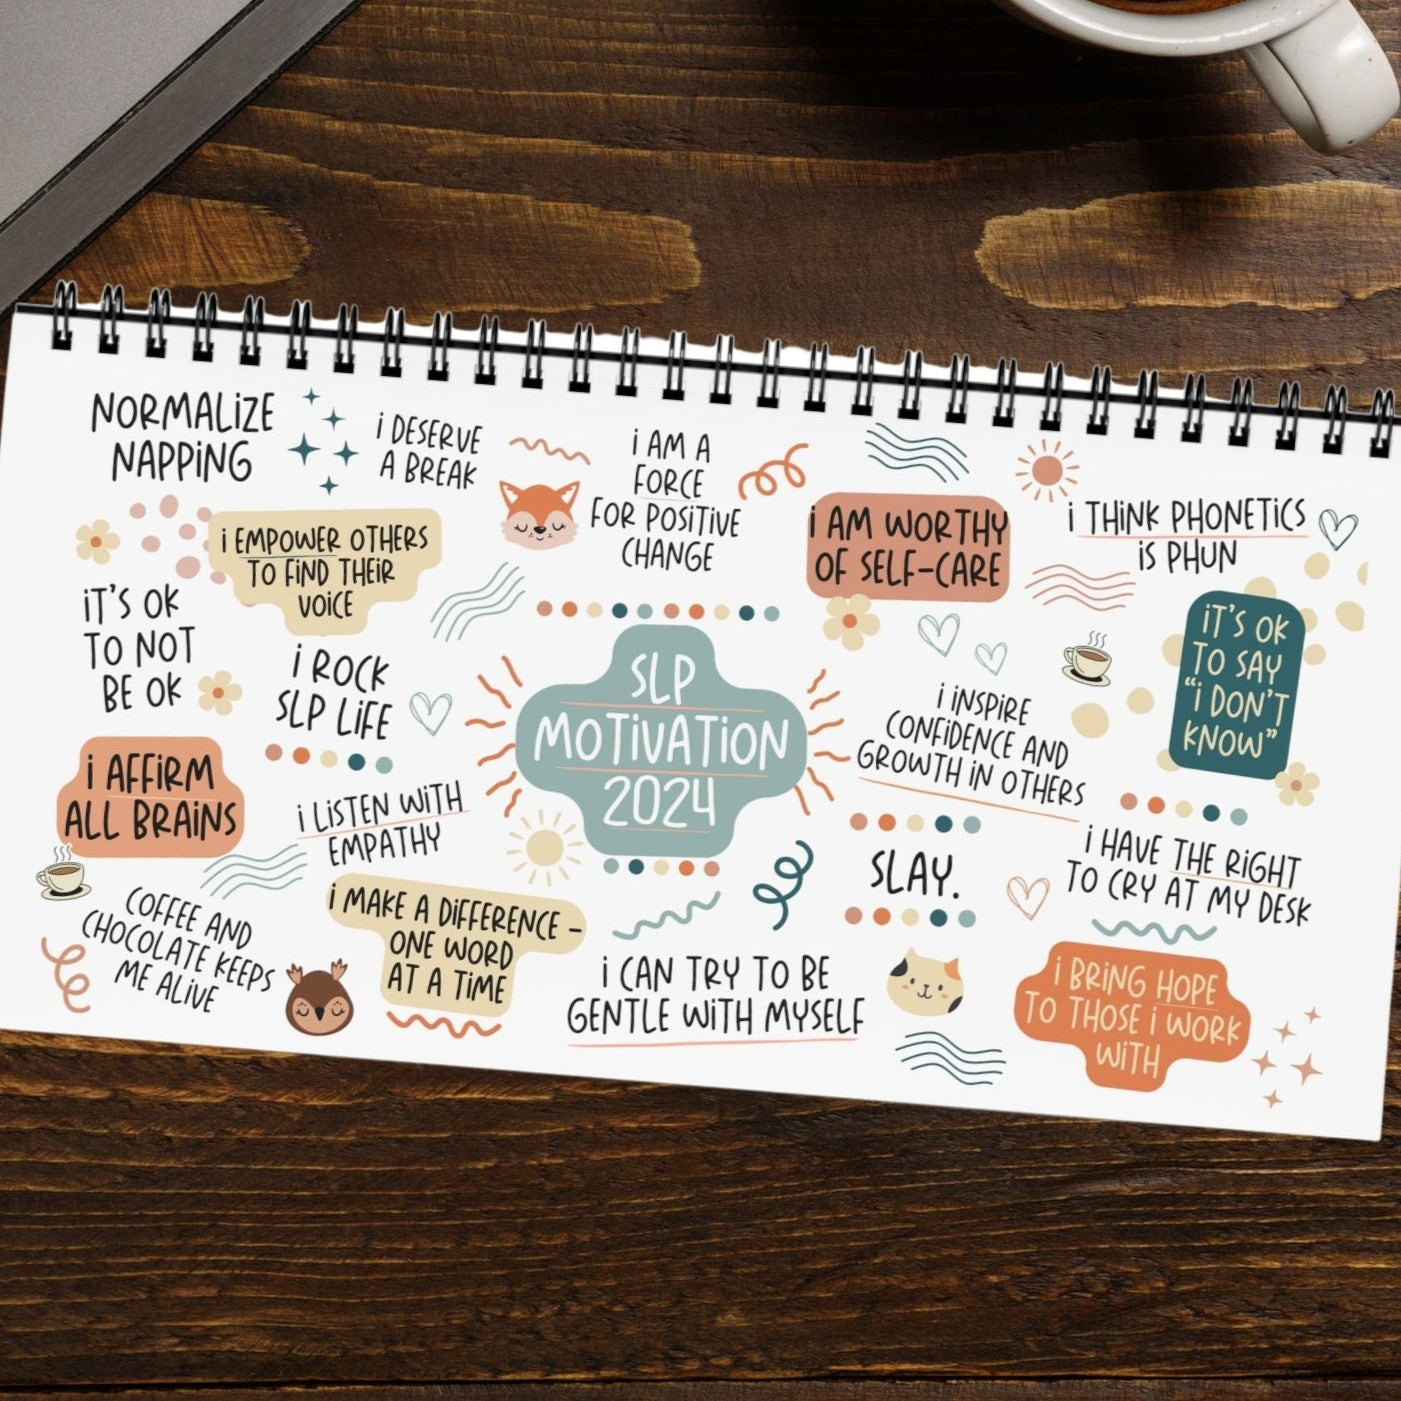 NORMALIZE
NAPPING
I DESERVE
A BREAK
I AM A
FORCE
FOR POSITIVE
CHANGE
I AM WORTHY
OF SELF-CARE
I THINK PHONETICS
IS PHUN
I EMPOWER OTHERS
TO FIND THEIR
VOICE
IT'S OK
TO NOT
BE OK
I ROCK
SLP LIFE
SLP
MOTIVATION
2024
I INSPIRE
CONFIDENCE AND
GROWTH IN OTHERS
IT'S OK
TO SAY
"I DON'T
KNOW"
I AFFIRM
ALL BRAINS
I LISTEN WITH
EMPATHY
SLAY.
I HAVE THE RIGHT
TO CRY AT MY DESK
COFFEE AND
CHOCOLATE KEEPS
ME ALIVE
I MAKE A DIFFERENCE -
ONE WORD
AT A TIME
I CAN TRY TO BE
GENTLE WITH MYSELF
I BRING HOPE
TO THOSE I WORK
WITH